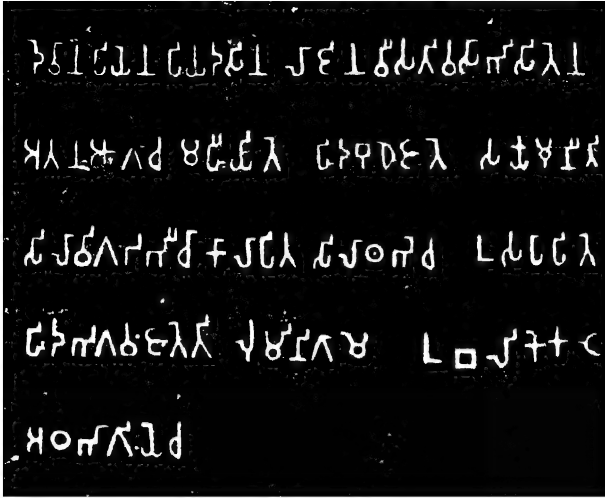 𑀤𑁂𑀯𑀸𑀦𑀧𑀺𑀬𑁂𑀦 𑀧𑀺𑀬𑀤𑀲𑀺𑀦 𑀮𑀸𑀚𑀺𑀦 𑀯𑀻𑀲𑀢𑀺𑀯𑀲𑀸𑀪𑀺𑀲𑀺𑀢𑁂𑀦
𑀅𑀢𑀦 𑀆𑀕𑀸𑀘 𑀫𑀳𑀻𑀬𑀺𑀢𑁂 𑀳𑀺𑀤 𑀩𑀼𑀥𑁂 𑀚𑀸𑀢𑁂 𑀲𑀓𑁆𑀬𑀫𑀼𑀦𑀻𑀢𑀺
𑀲𑀺𑀮𑀸𑀯𑀺𑀕𑀟𑀪𑀻𑀘𑀸 𑀓𑀸𑀮𑀸𑀧𑀺𑀢 𑀲𑀺𑀮𑀸𑀣𑀪𑁂𑀘 𑀉𑀲𑀧𑀸𑀧𑀺𑀢𑁂
𑀳𑀺𑀤 𑀪𑀕𑀯𑀁 𑀚𑀸𑀢𑁂𑀢𑀺 𑀮𑀼𑀁𑀫𑀺𑀦𑀺𑀕𑀸𑀫𑁂 𑀉𑀩𑀮𑀺𑀓𑁂 𑀓𑀝𑁂
𑀅𑀞𑀪𑀸𑀕𑀺𑀬𑁂 𑀘